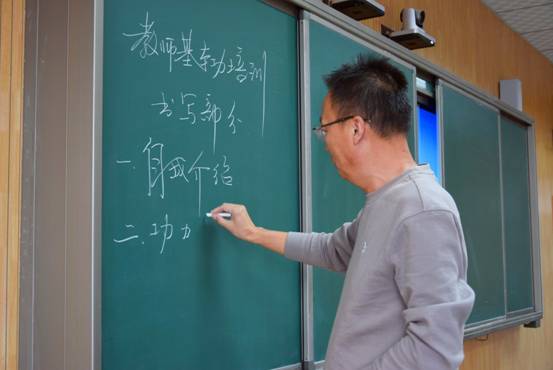 教师基本功培训
书写部分
一.自我介绍
二.功力